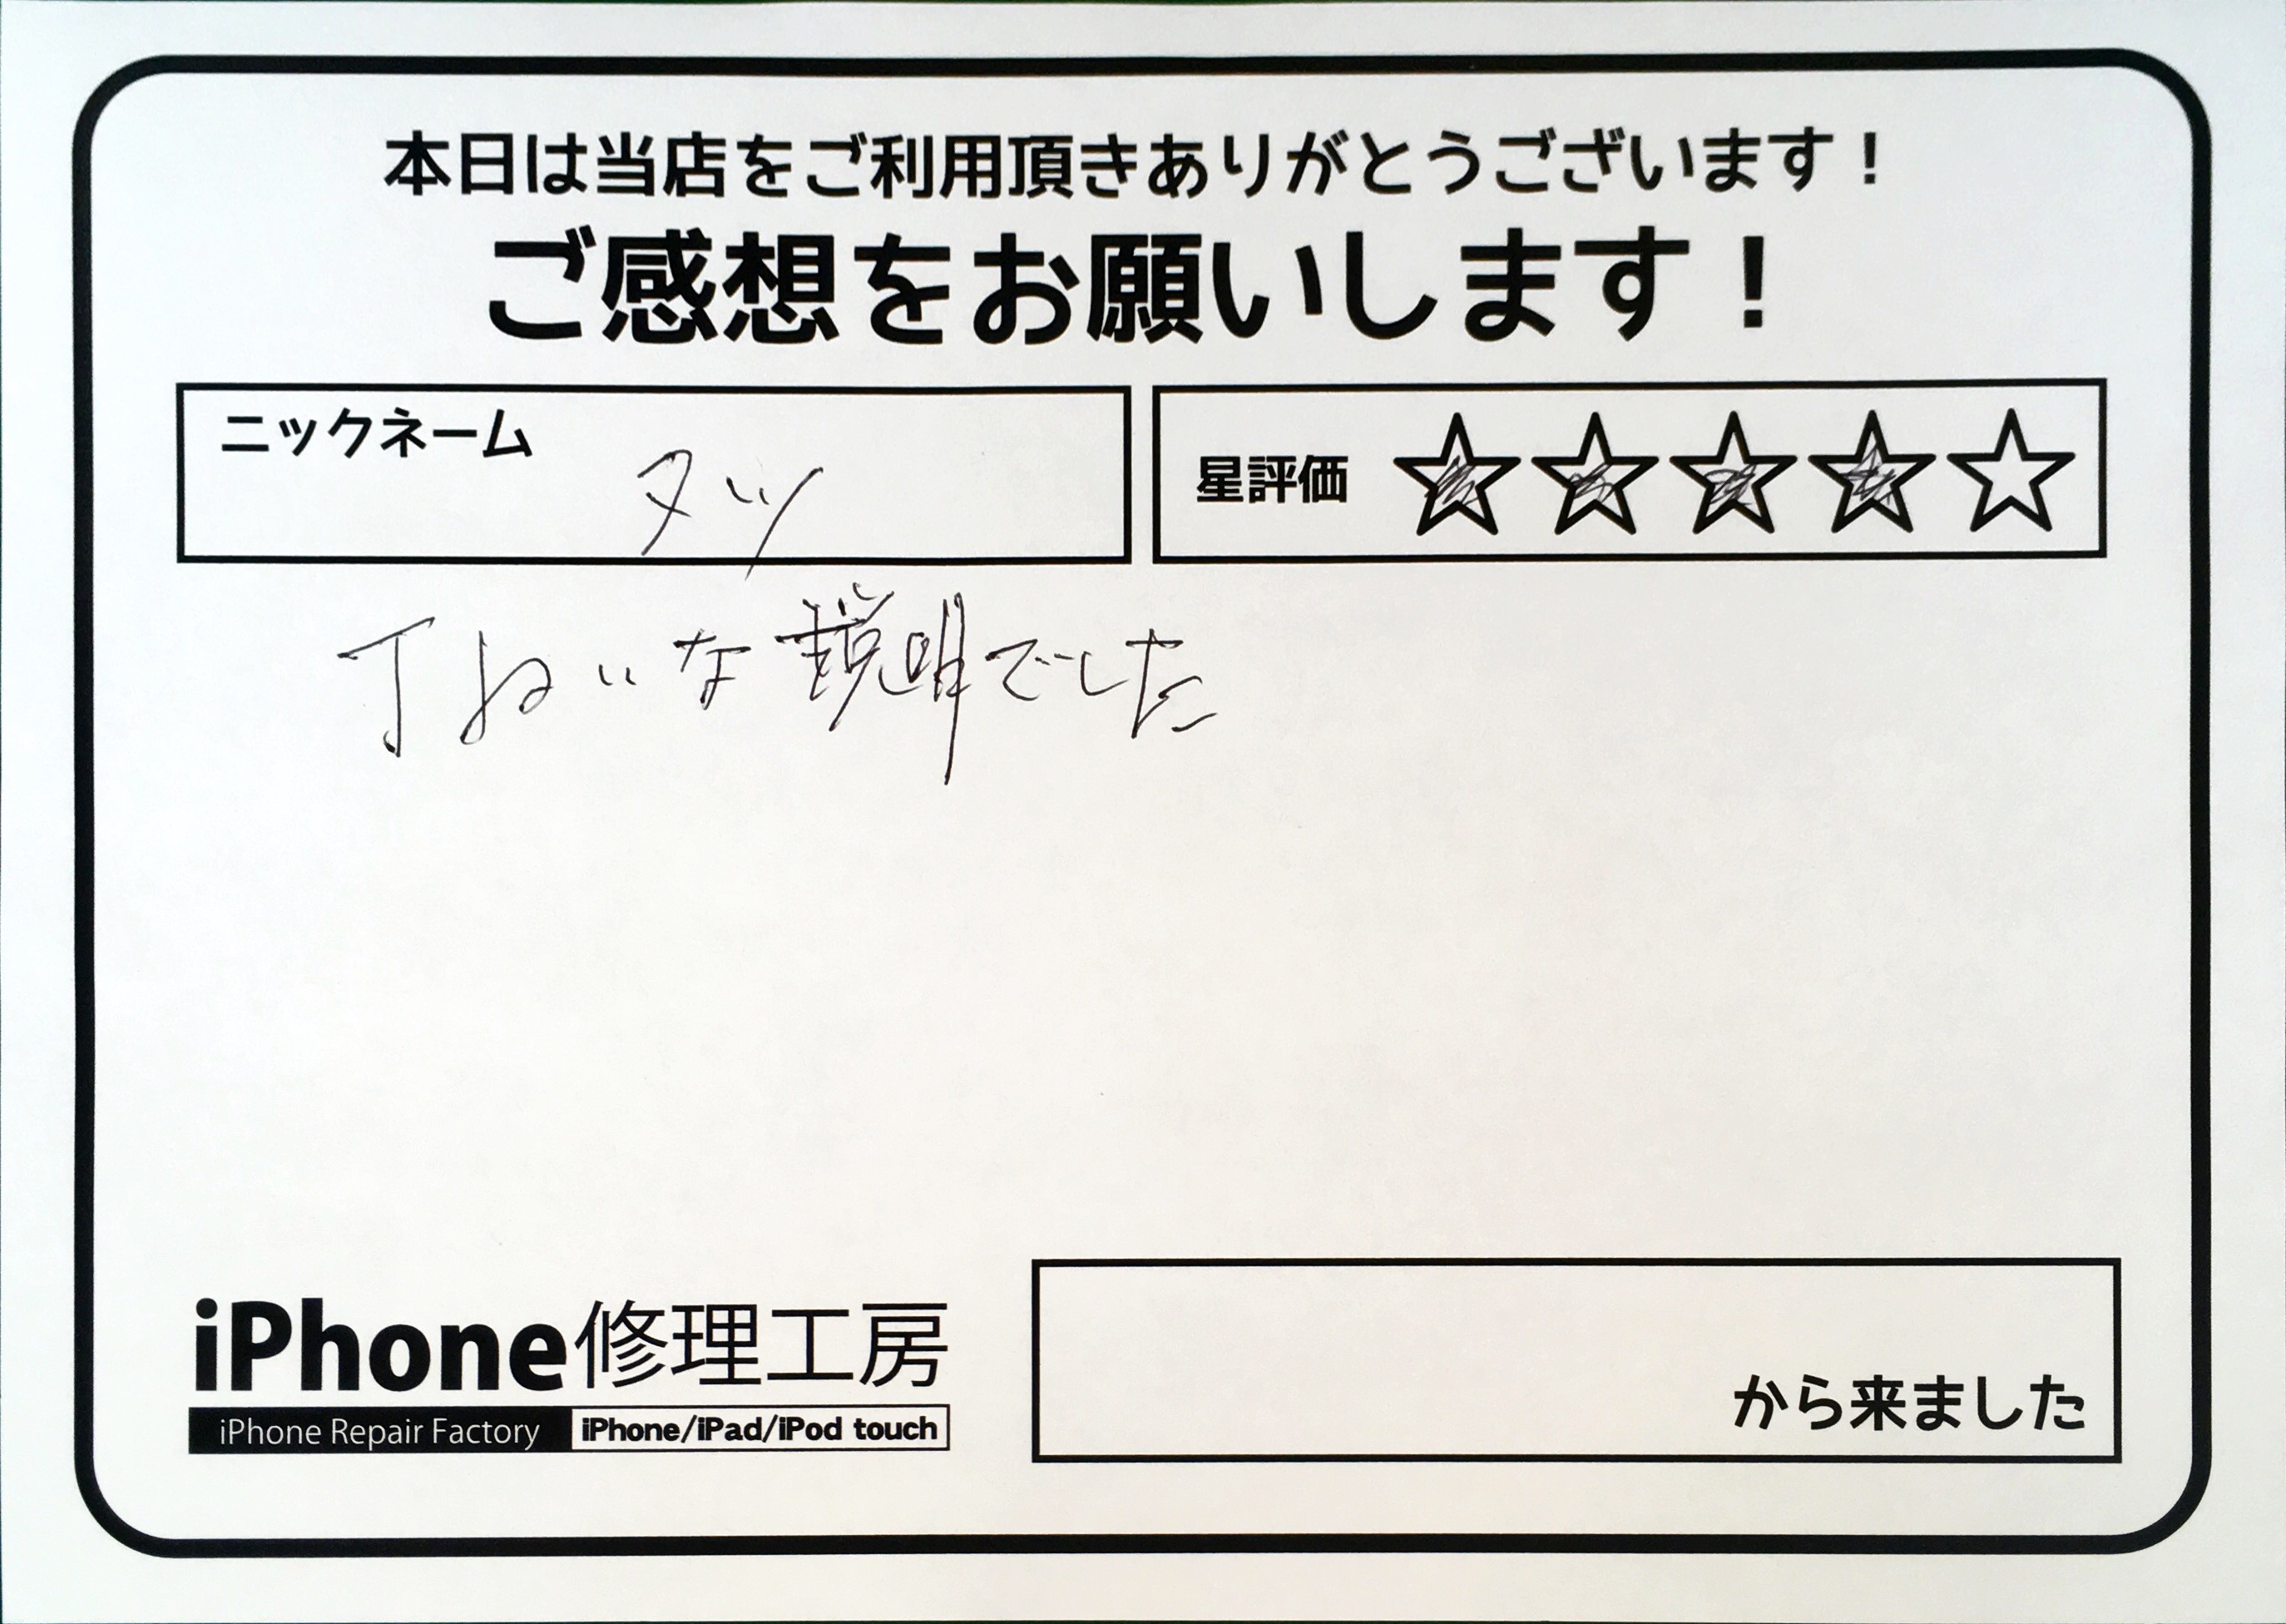 本日は当店をご利用頂きありがとうございます！
ご感想をお願いします！
ニックネーム
タツ
星評価 ★★★★☆
丁ねいな説明でした
iPhone修理工房
iPhone Repair Factory iPhone/iPad/iPod touch
から来ました